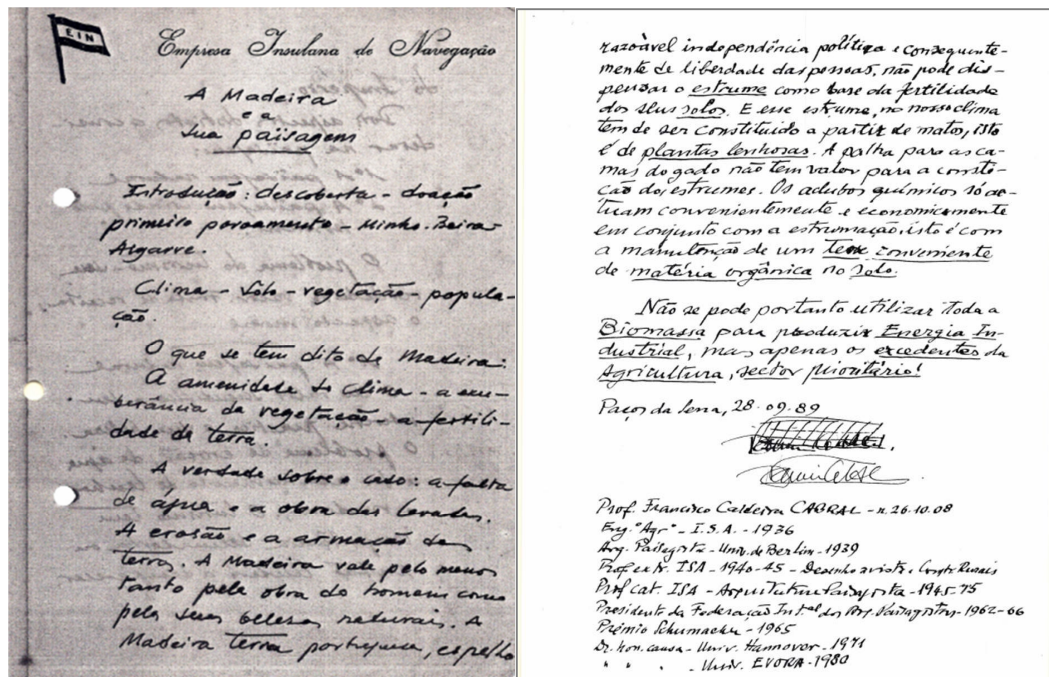 EIN
Empresa Insulana de Navegação
A Madeira
e a
sua paisagem
Introdução: descoberta - doação
primeiro povoamento - Minho. Beira
Algarve.
Clima - Solo - vegetação - popula-
ção.
O que se tem dito da Madeira:
A amenidade do Clima - a exu-
berância da vegetação - a fertili-
dade da terra.
A verdade sobre o caso: a falta
de água e a obra das levadas.
A erosão e a armação das
terras. A Madeira vale pelo menos
tanto pela obra do homem como
pelas suas belezas naturais. A
Madeira terra portuguesa, espelho
razoável independência política e consequente-
mente de liberdade das pessoas, não pode dis-
pensar o estrume como base da fertilidade
dos seus solos. E esse estrume, no nosso clima
tem de ser constituido a partir de matos, isto
é de plantas lenhosas. A palha para as ca-
mas do gado não tem valor para a constitu-
ção dos estrumes. Os adubos químicos só ac-
tuam convenientemente e economicamente
em conjunto com a estrumação, isto é com
a manutenção de um teor conveniente
de matéria orgânica no solo.
Não se pode portanto utilizar toda a
Biomassa para produzir Energia In-
dustrial, mas apenas os excedentes da
Agricultura, sector prioritário!
Paços da Serra, 28.09.89
Prof. Francisco Caldeira CABRAL - n. 26.10.08
Eng.º Agrº - I.S.A. - 1936
Arq. Paisagista - Univ. de Berlin - 1939
Prof. extr. ISA - 1940-45 - Desenho e Constr. Rurais
Prof. cat. ISA - Arquitetura Paisagista - 1945-75
Presidente da Federação Int.al dos Arq. Paisagistas - 1962-66
Prémio Schumacher - 1965
Dr. hon. causa - Univ. Hannover - 1971
" " " - Univ. EVORA - 1980